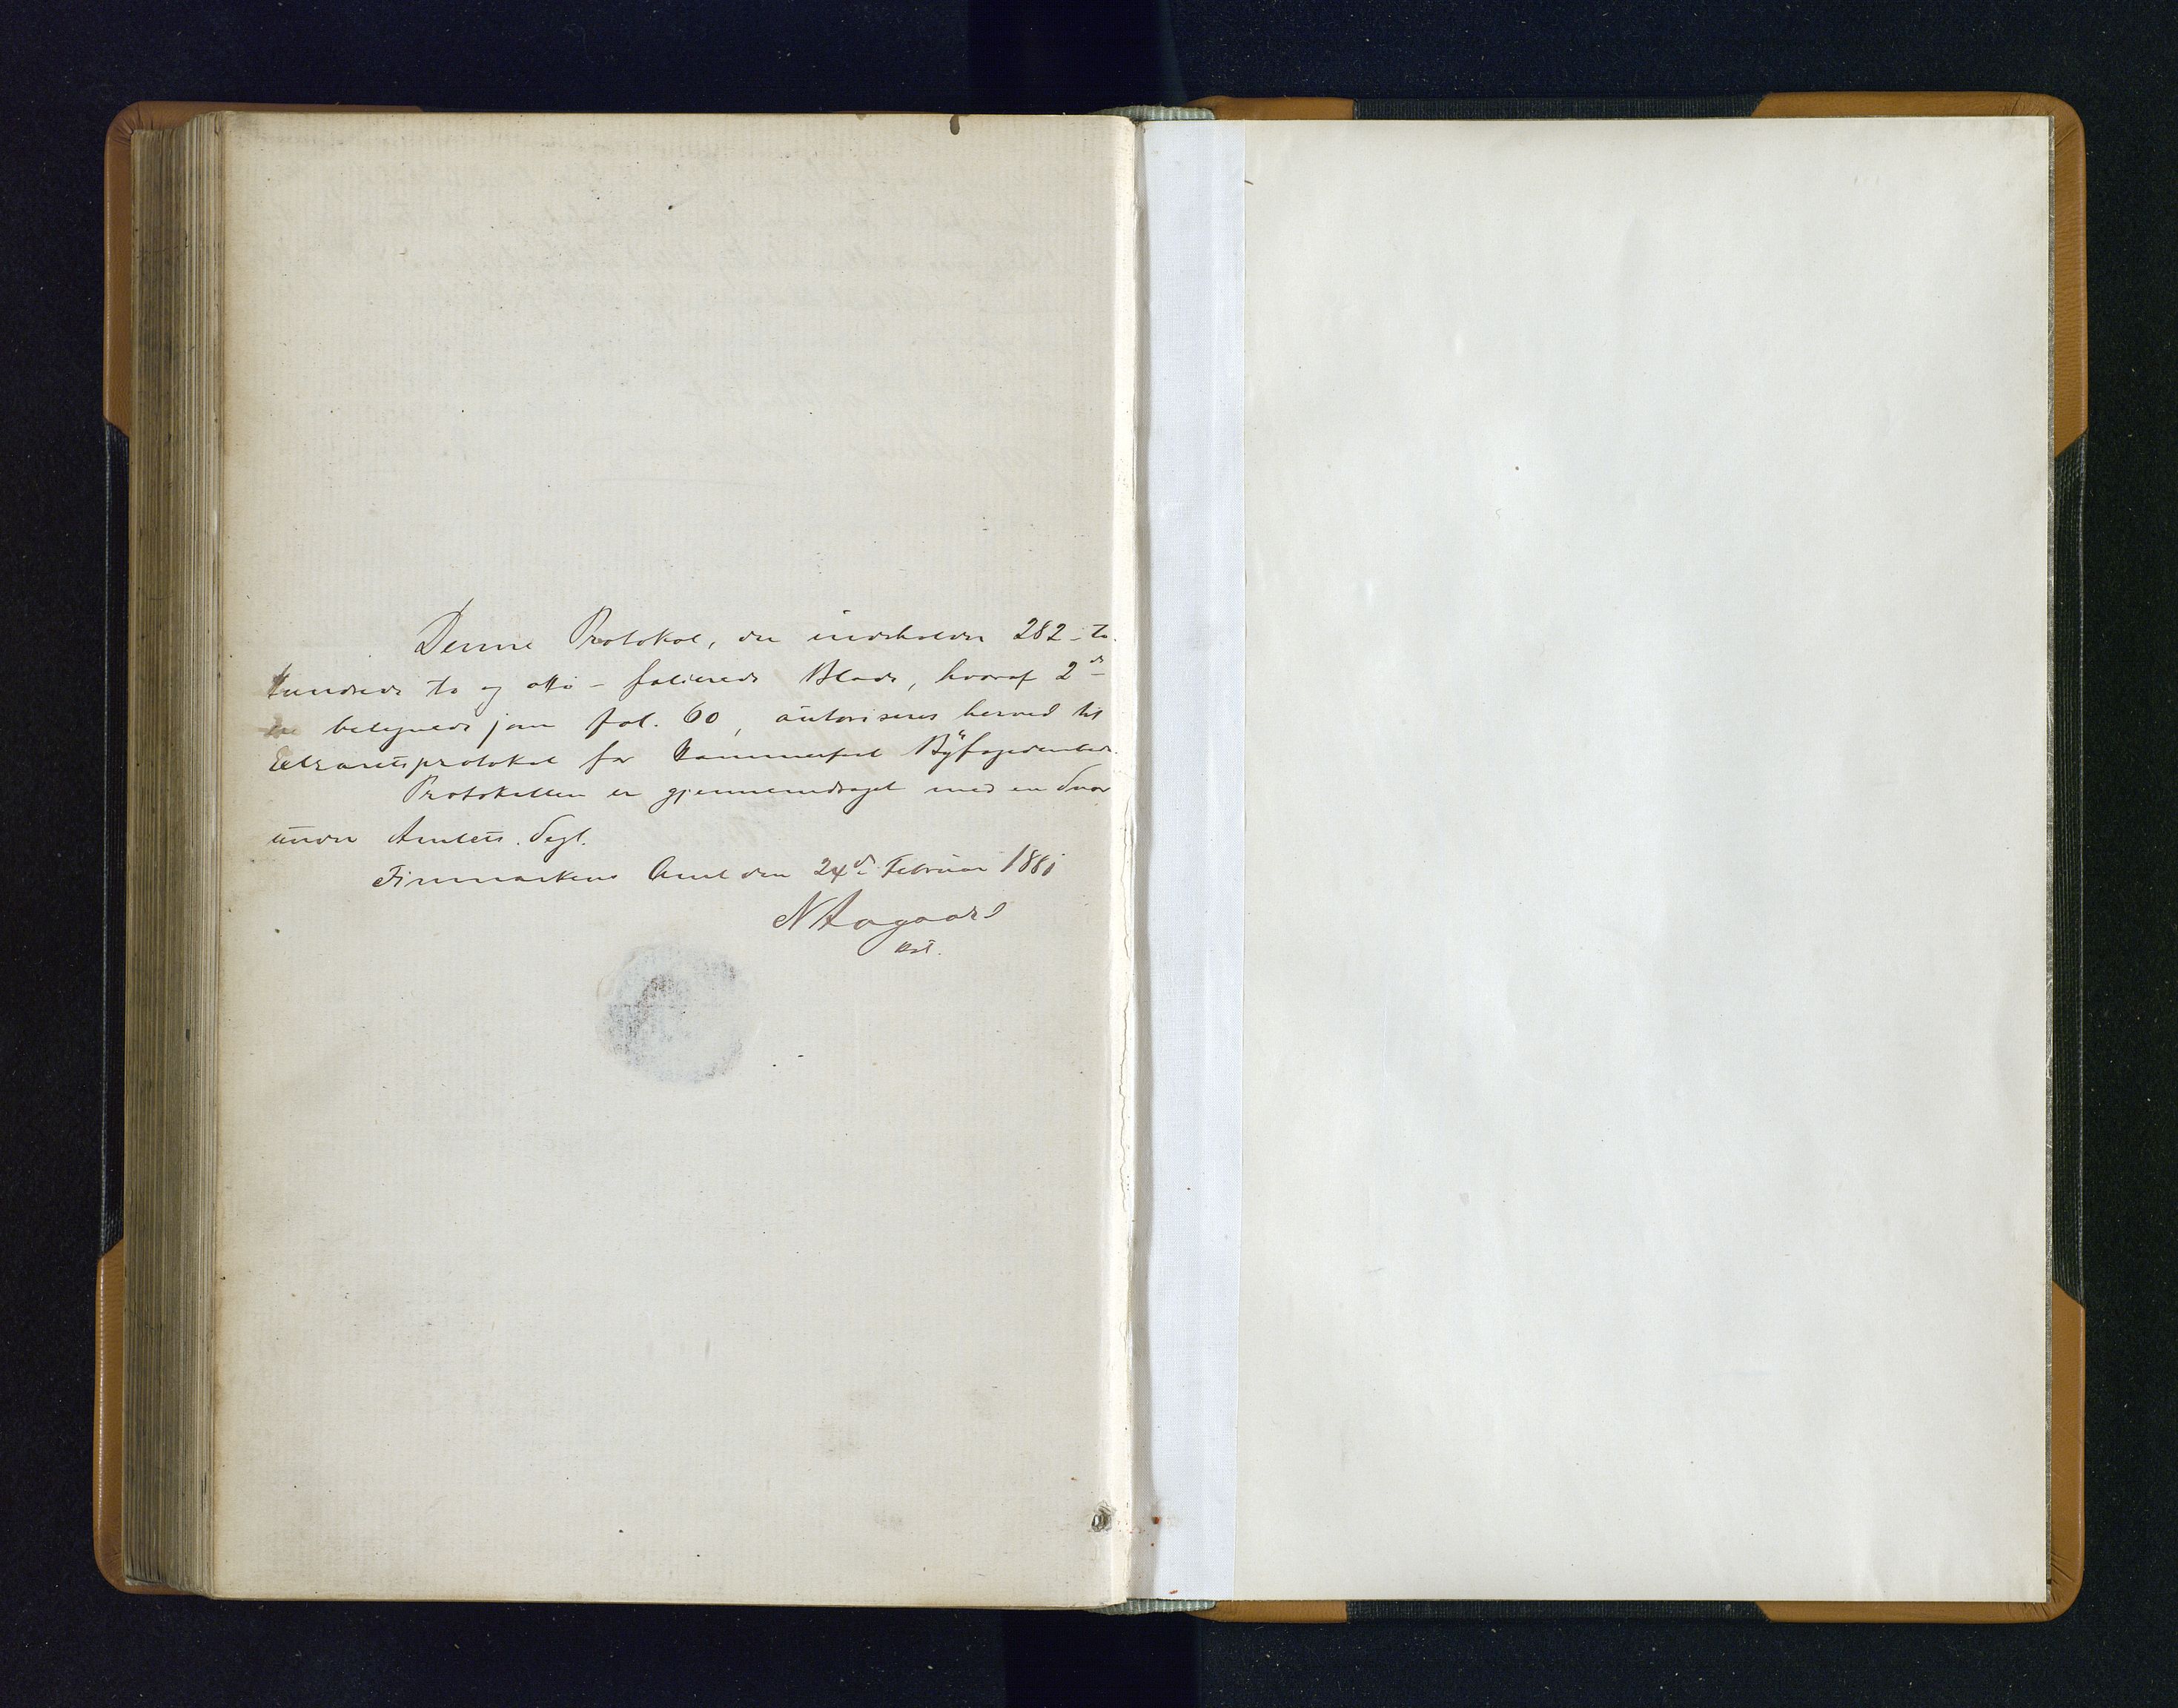 Denne Protokol, der indeholder 282 - to
hundrede to og otti - folierede Blade, hvoraf 2de
ere betegnede som fol. 60, autoriseres herved til
Extraretsprotokol for Hammerfest Byfogedembede.
Protokollen er gjennemdraget med en Snor
under Amtets Segl.
Finmarkens Amt den 24de Februar 1881
N Aagaard
kst.